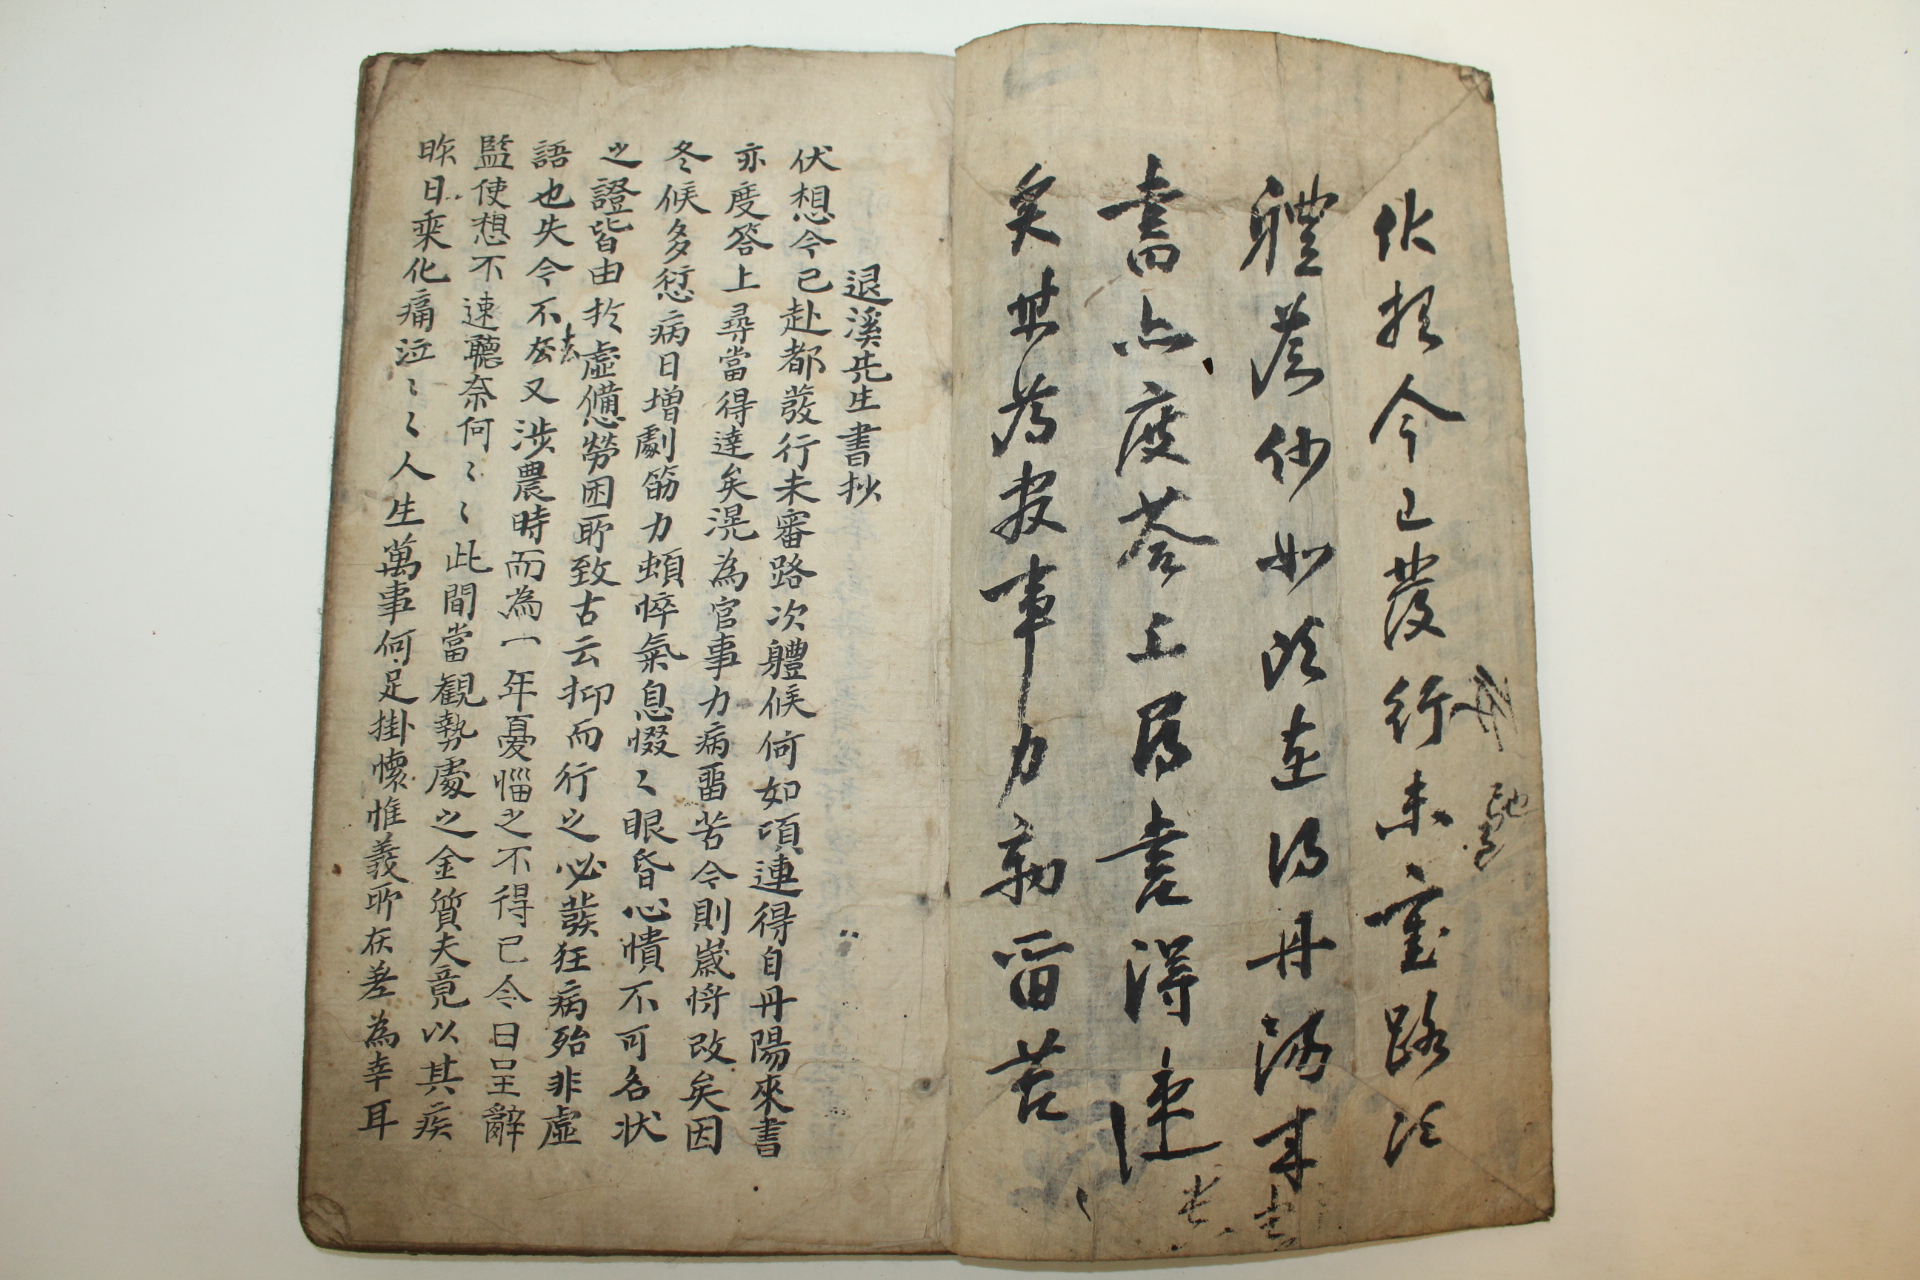 伏想今已發行未審路次
體候何如頃連得丹陽來
書亦度答上尋書得達
矣某為官事力病留苦
退溪先生書抄
伏想今已赴都發行未審路次體候何如頃連得自丹陽來書
亦度答上尋當得達矣滉為官事力病畱苦今則歲將改矣因
冬候多愆病日增劇筋力頓悴氣息惙〻眼昏心憒不可名状
之證皆由扵虛憊勞困所致古云抑而行之必發狂病殆非虛
語也失今不去又涉農時而為一年憂惱之不得已今日呈辭
監使想不速聽奈何〻〻此間當觀勢處之金質夫竟以其疾
昨日乘化痛泣〻〻人生萬事何足掛懷惟義所在差為幸耳